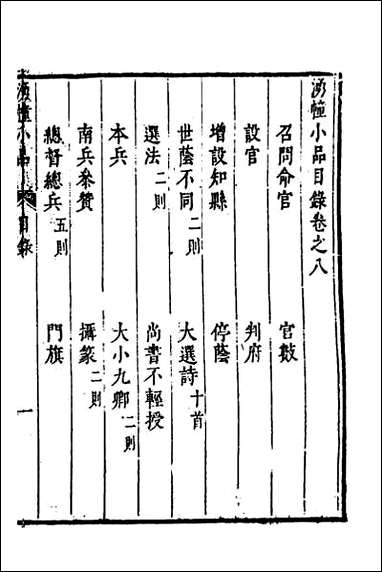 湧幢小品目錄卷之八
召問命官
官數
設官
判府
增設知縣
停蔭
世蔭不同二則
大選詩十首
選法二則
尚書不輕授
本兵
大小九卿二則
南兵叅贊
攝篆二則
總督總兵五則
門旗
湧幢小品
目錄
一